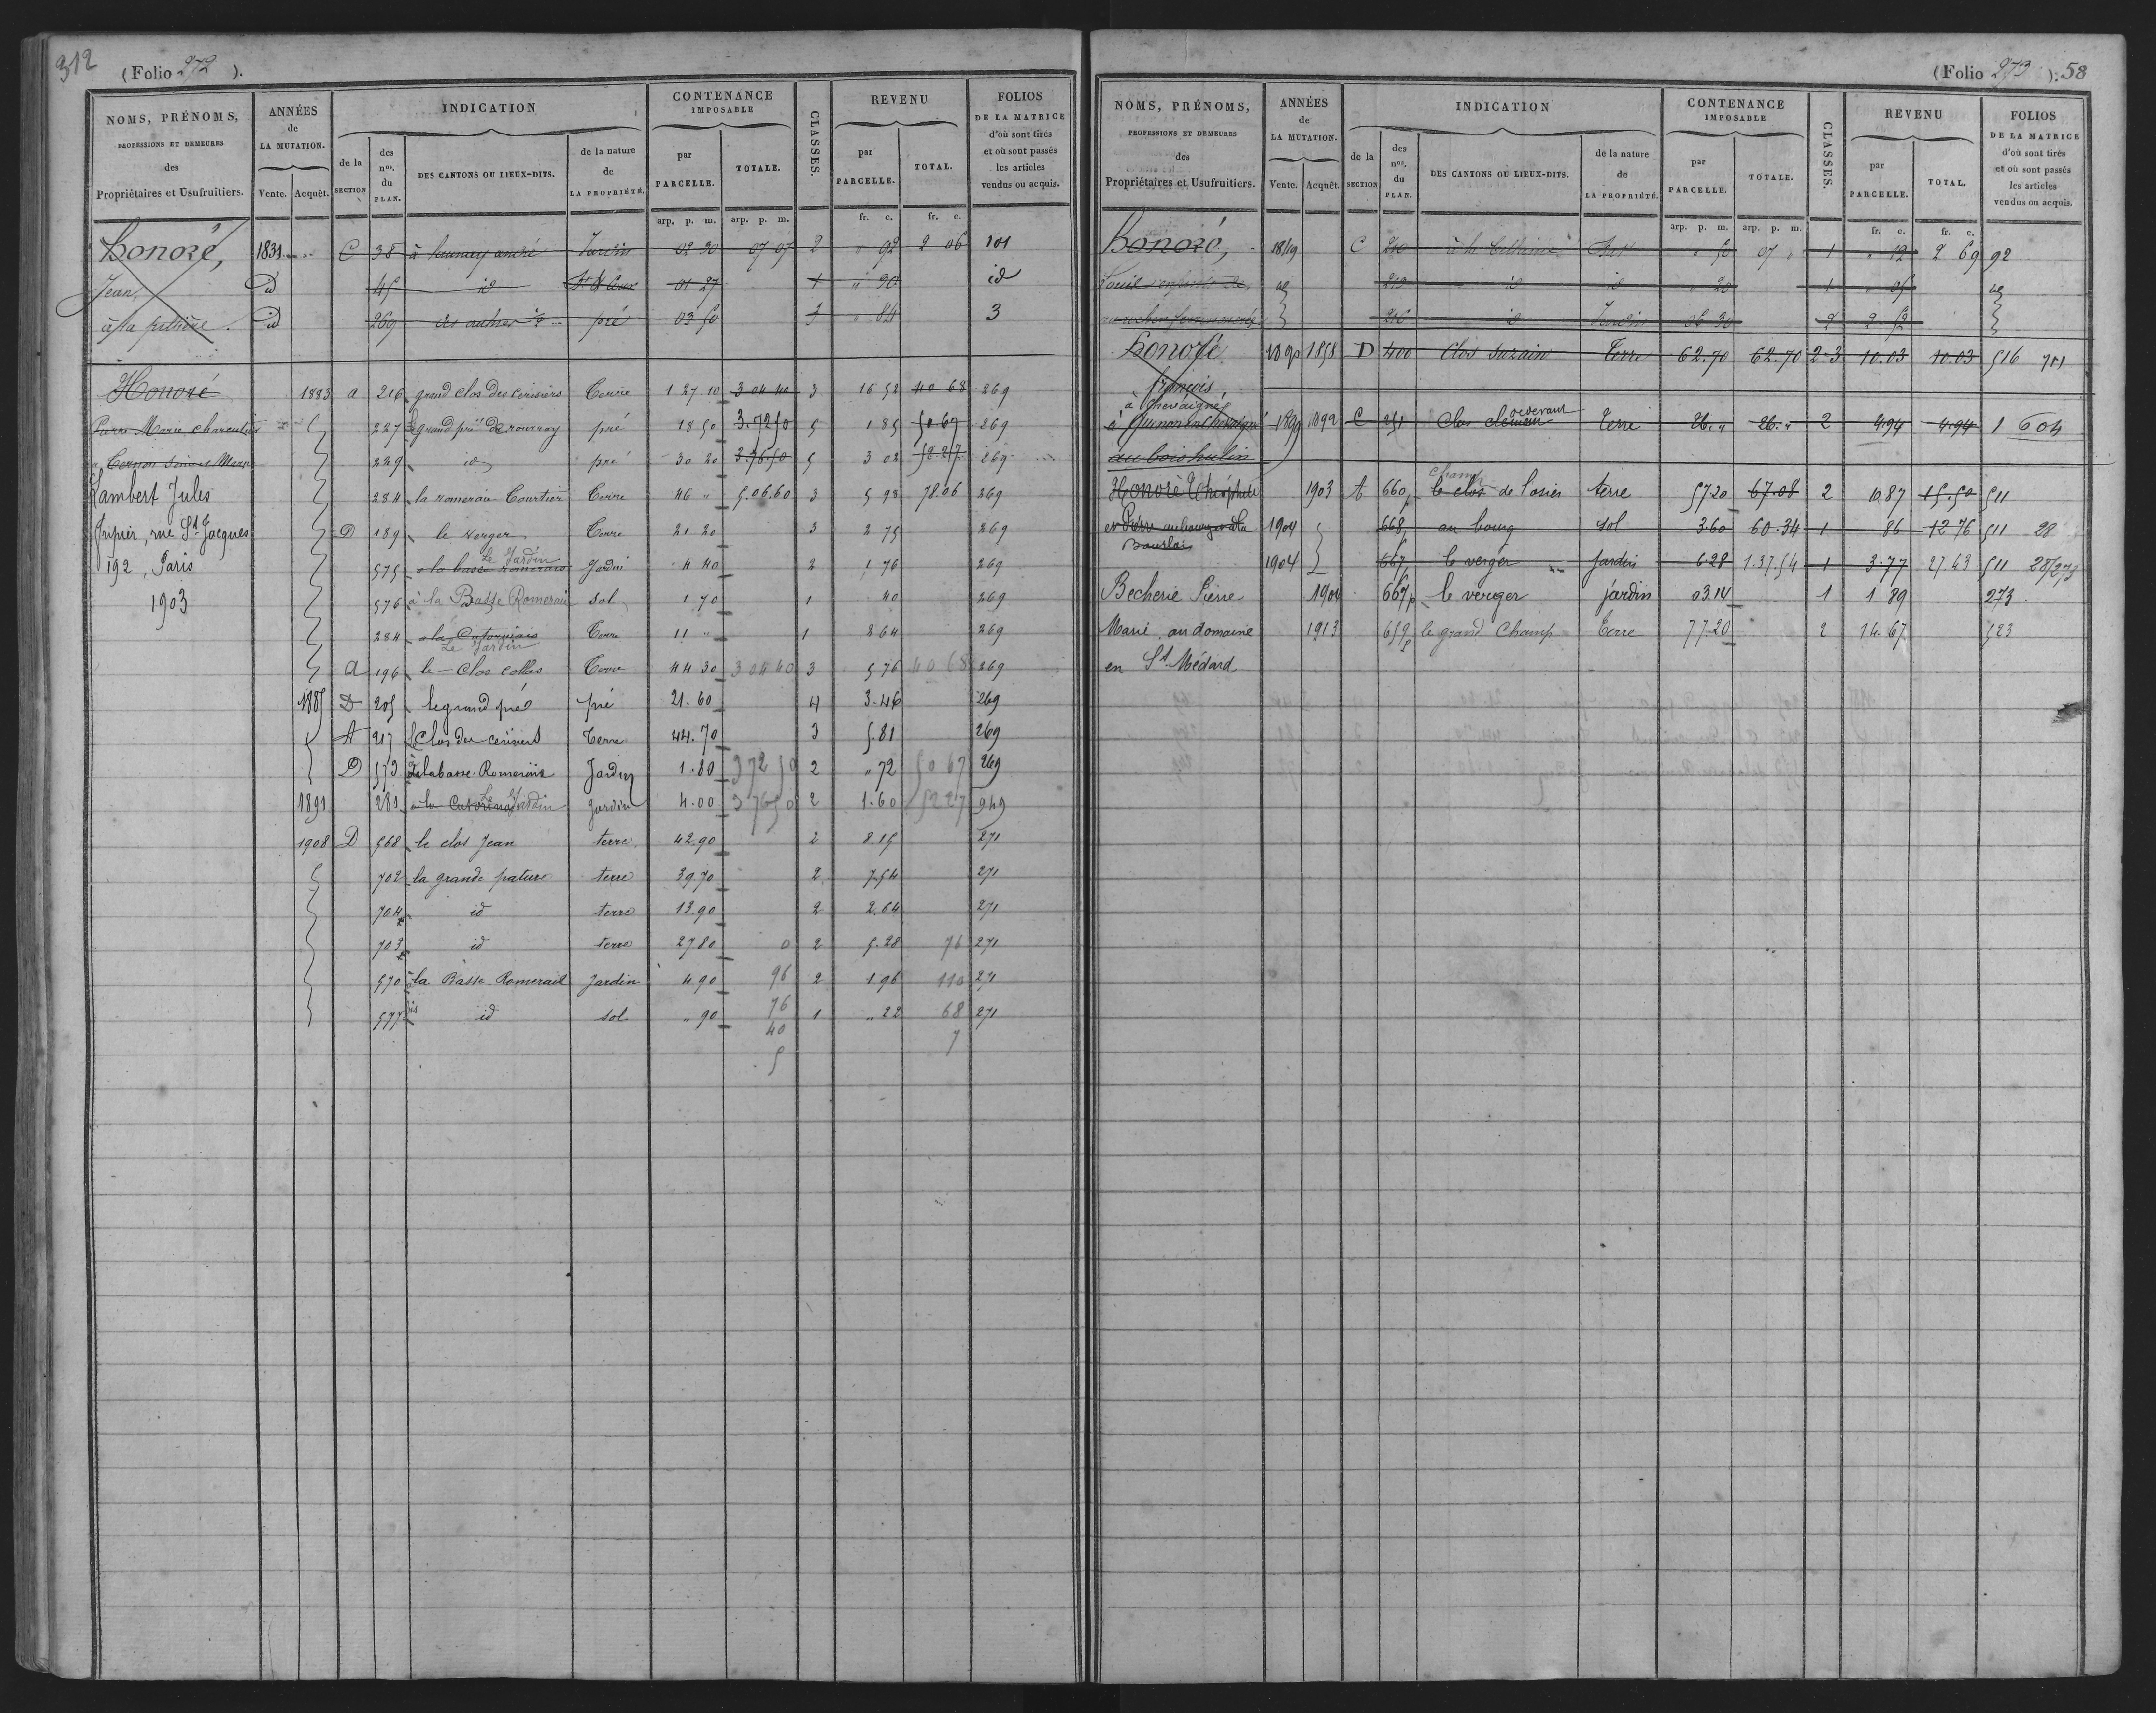 312
(Folio 272 ).
NOMS, PRÉNOMS, PROFESSIONS ET DEMEURES des Propriétaires et Usufruitiers.
ANNÉES de LA MUTATION. Vente. Acquêt.
INDICATION
de la SECTION
des nos. du PLAN.
DES CANTONS OU LIEUX-DITS.
de la nature de LA PROPRIÉTÉ.
CONTENANCE IMPOSABLE
par PARCELLE. TOTALE.
arp. p. m. arp. p. m.
CLASSES.
REVENU
par PARCELLE. TOTAL.
fr. c. fr. c.
FOLIOS DE LA MATRICE d'où sont tirés et où sont passés les articles vendus ou acquis.
honoré, 1831 C 38 Jardin 02 30 07 07 2 " 92 2 06 101
Jean, id 45 id 01 27 1 " 30 id
à la id 269 pré 03 50 3 " 84 3
Honoré 1883 a 216 grand clos des cerisiers Terre 1 27 10 3 04 40 3 16 52 40 68 269
Pierre Marie 227 grand pré pré 18 50 3.72 50 5 1 85 50 67 269
229 id pré 30 20 3.76 50 5 3 02 52.27 269
Lambert Jules 284 la romeraie Courtier Terre 46 " 5.06.60 3 5 98 78.06 269
Fripier, rue St Jacques D 189 le verger Terre 21 20 3 2 75 269
192, Paris 575 à la basse romerais Le Jardin Jardin 4 40 2 1 76 269
1903 576 à la Basse Romerais sol 1 70 1 40 269
284 Le Jardin Terre 11 " 1 2 64 269
a 196 le Clos collas Terre 44 30 3 04 40 3 5 76 40 68 269
1885 D 205 le grand pré pré 21.60 4 3.46 269
A 217 Clos des cerisiers Terre 44.70 3 5.81 269
D 573 la basse Romerais Jardin 1.80 372 50 2 " 72 50 67 269
1891 281 Le Jardin Jardin 4.00 376 50 2 1.60 5227 949
1908 D 568 le clos Jean terre 42.90 2 8.15 271
702 la grande pature terre 39.70 2 7.54 271
704 id terre 13.90 2 2.64 271
703 id terre 27.80 0 2 5.28 76 271
570 à la Basse Romerais Jardin 4.90 96 2 1.96 110 271
577 bis id sol " 90 76 1 " 22 68 271
40 7
5
(Folio 273 ). 58
NOMS, PRÉNOMS, PROFESSIONS ET DEMEURES des Propriétaires et Usufruitiers.
ANNÉES de LA MUTATION. Vente. Acquêt.
INDICATION
de la SECTION
des nos. du PLAN.
DES CANTONS OU LIEUX-DITS.
de la nature de LA PROPRIÉTÉ.
CONTENANCE IMPOSABLE
par PARCELLE. TOTALE.
arp. p. m. arp. p. m.
CLASSES.
REVENU
par PARCELLE. TOTAL.
fr. c. fr. c.
FOLIOS DE LA MATRICE d'où sont tirés et où sont passés les articles vendus ou acquis.
honoré, 1849 C 210 " 50 07 " 1 " 12 2 69 92
id id " 20 1 " 05 id
id Jardin 06 30 2 2 52
honoré 1890 1858 D 400 Clos Suzain Terre 62.70 62.70 2-3 10.03 10.03 516 701
françois
à Chevaigné
1899 1892 C 251 Clos Terre 26." 26." 2 4.94 4.94 1 604
au bois hulin
Honoré Théophile 1903 A 660p le clos de l'osier champ terre 57.20 67.08 2 10.87 15.50 511
et Pierre au bourg 1904 668p au bourg sol 3.60 60.34 1 86 12.76 511 28
1904 667p le verger jardin 6.28 1.37.54 1 3.77 27.43 511 28/273
Becherie Pierre 1904 667p le verger jardin 03.14 1 1 89 273
Marie, au domaine 1913 659p le grand Champ Terre 77.20 2 14.67 523
en St. Médard